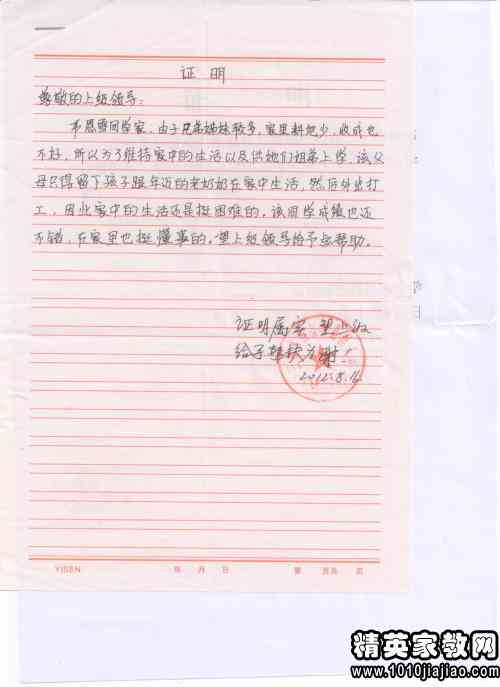 证明
尊敬的上级领导：
韦恩雪同学家，由于兄弟姐妹较多，家里耕地少，收成也
不好，所以为了维持家中的生活以及供她们姐弟上学，该父
母只得留下孩子跟年迈的老奶奶在家中生活，然后外出打
工，因此家中的生活还是挺困难的。该同学成绩也还
不错，在家里也挺懂事的。望上级领导给予些帮助。
证明属实 望上级
给予扶为谢！
2012.8.14
YISEN 年 月 日 第 页共 页
精英家教网
www.1010jiajiao.com